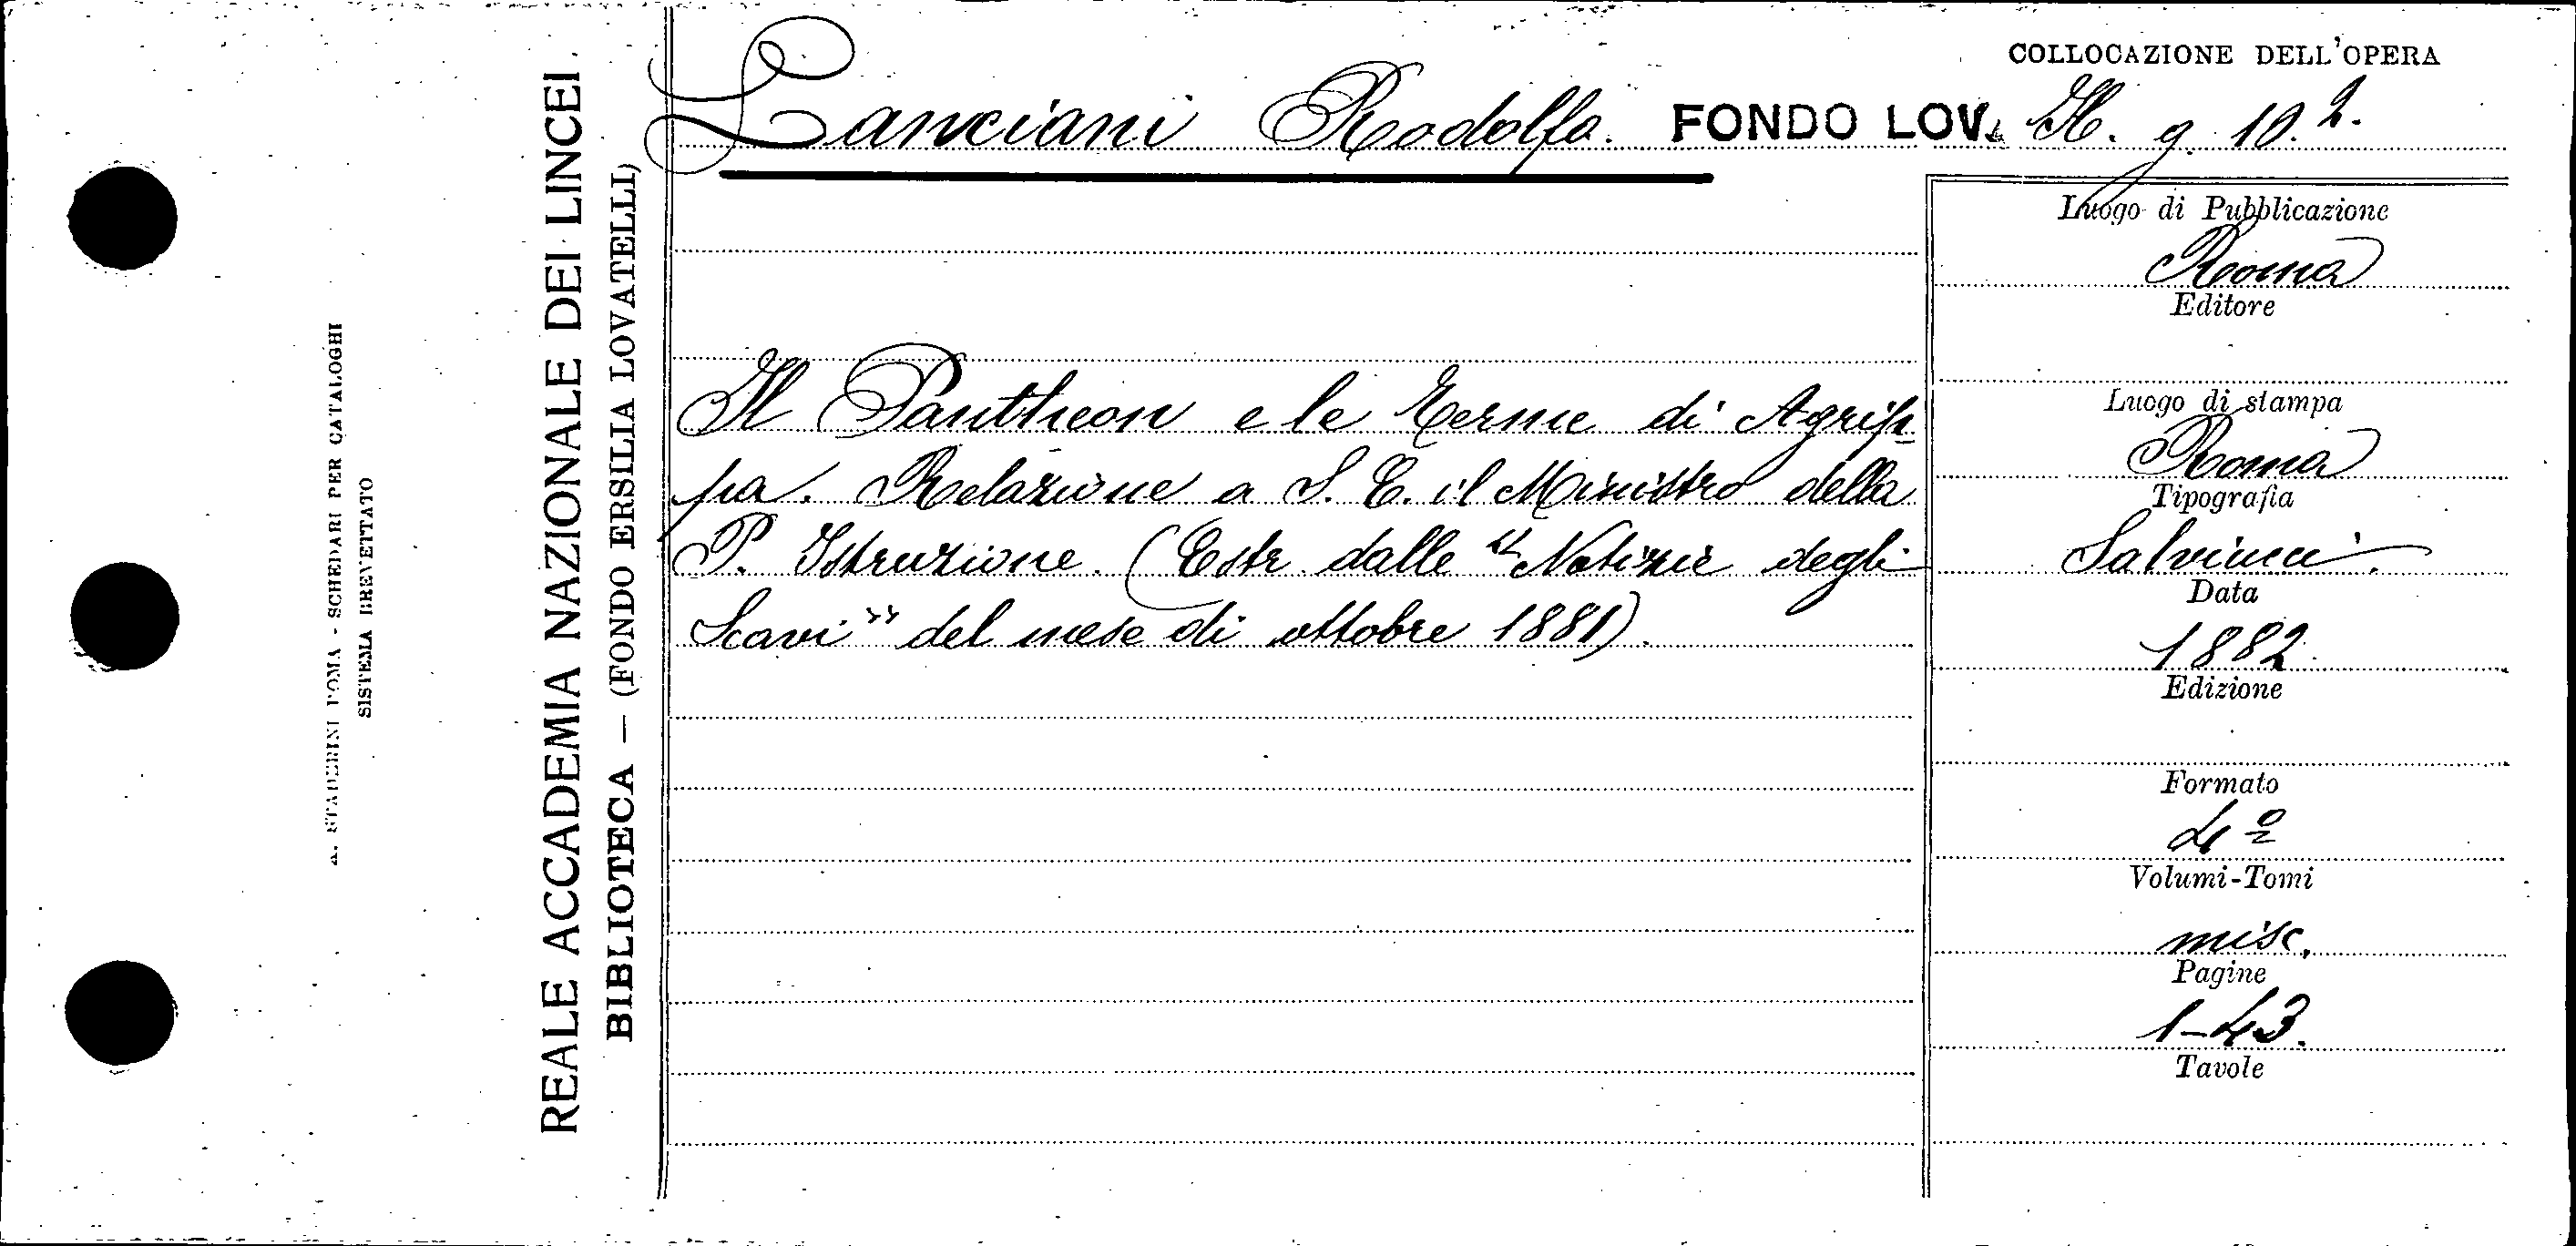 COLLOCAZIONE DELL'OPERA
Lanciani Rodolfo. FONDO LOV. H. g. 10. 2.
Il Pantheon e le Terme di Agrip
pa. Relazione a S. E. il Ministro della
P. Istruzione. (Estr. dalle "Notizie degli
Scavi" del mese di ottobre 1881).
Luogo di Pubblicazione
Roma
Editore
Luogo di stampa
Roma
Tipografia
Salviucci.
Data
1882.
Edizione
Formato
4º
Volumi-Tomi
misc.
Pagine
1-43.
Tavole
REALE ACCADEMIA NAZIONALE DEI LINCEI
BIBLIOTECA — (FONDO ERSILIA LOVATELLI)
A. STADERINI ROMA - SCHEDARI PER CATALOGHI
SISTEMA BREVETTATO